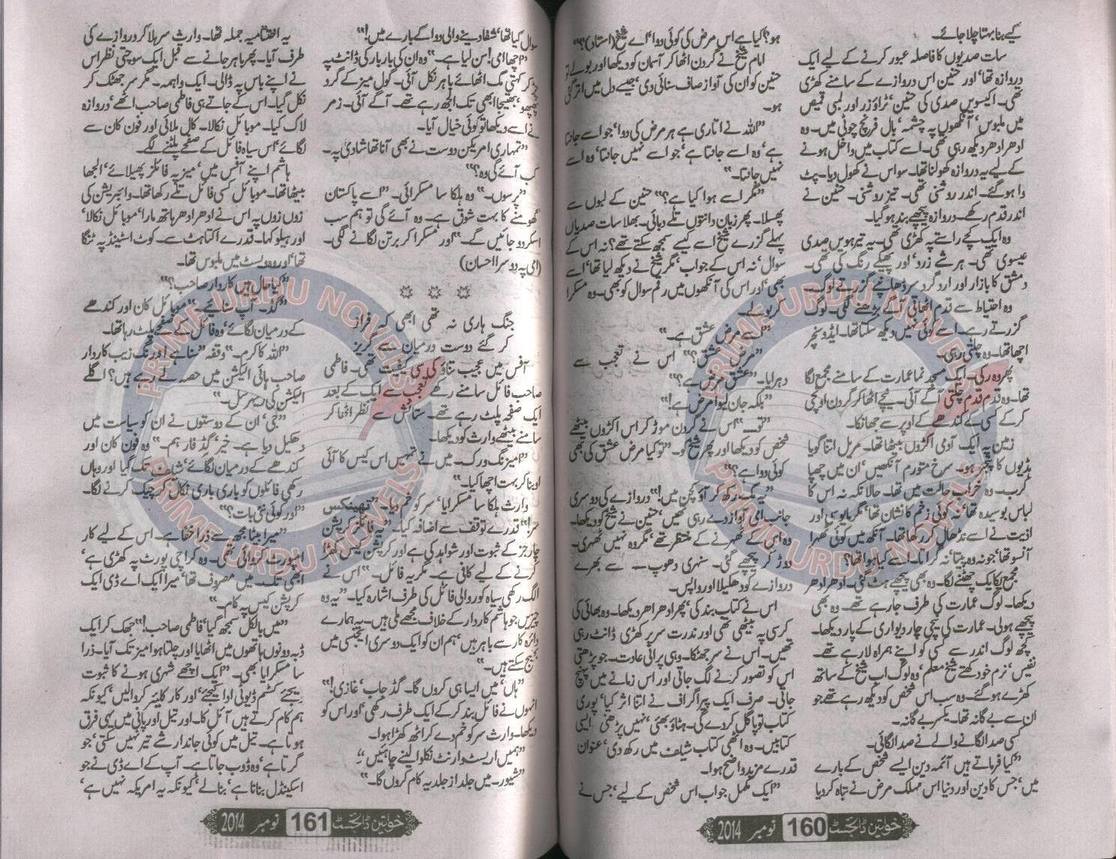 کیسے بنا بہتا چلا جائے۔
سات صدیوں کا فاصلہ عبور کرنے کے لیے ایک
دروازہ تھا اور حنین اس دروازے کے سامنے کھڑی
تھی۔ اکیسویں صدی کی حنین، ٹراؤزر اور لمبی قمیص
میں ملبوس، آنکھوں پہ چشمہ، بال فرنچ چوٹی میں۔ وہ
ادھر ادھر دیکھ رہی تھی۔ اسے کتاب میں داخل ہونے
کے لیے یہ دروازہ کھولنا تھا۔ سو اس نے کھول دیا۔ پٹ
وا ہو گئے۔ اندر روشنی تھی۔ تیز روشنی۔ حنین نے
اندر قدم رکھے۔ دروازہ پیچھے بند ہو گیا۔
وہ ایک کچے راستے پہ کھڑی تھی۔ یہ تیرہویں صدی
عیسوی تھی۔ ہر شے زرد اور پھیکے رنگ کی تھی۔
دمشق کا بازار اور ارد گرد سر ڈھانپے گزرتے لوگ۔
وہ احتیاط سے قدم اٹھاتی آگے بڑھنے لگی۔ لوگ
گزرتے رہے۔ اسے کوئی نہیں دیکھ سکتا تھا۔ ایڈونچر
اچھا تھا۔ وہ چلتی رہی۔
پھر وہ رکی۔ ایک مسجد نما عمارت کے سامنے مجمع لگا
تھا۔ وہ قدم قدم چلتی آگے آئی۔ پنجے اٹھا کر گردن اونچی
کر کے کسی کے کندھے کے اوپر سے جھانکا۔
زمین پہ ایک آدمی اکڑوں بیٹھا تھا۔ مریل اتنا گویا
ہڈیوں کا پنجر ہو۔ سرخ متورم آنکھیں، ان میں چھپا
کرب۔ وہ خراب حالت میں تھا۔ حالانکہ نہ اس کا
لباس بوسیدہ تھا نہ کوئی زخم کا نشان تھا، مگر مایوسی اور
اذیت نے اسے نڈھال کر رکھا تھا۔ آنکھ میں کوئی ٹھہرا
آنسو تھا جو نہ وہ پیتا تھا نہ گراتا۔ اسے کیا ہوا تھا؟
مجمع یکایک چھٹنے لگا۔ وہ بھی پیچھے ہٹ گئی۔ ادھر ادھر
دیکھا۔ لوگ عمارت کی طرف جا رہے تھے۔ وہ بھی
پیچھے ہولی۔ عمارت کی کچی چار دیواری کے پار دیکھا۔
کچھ لوگ اندر سے کسی کو اپنے ہمراہ لا رہے تھے۔
نفیس، نرم خو دکھتے شیخ معلم، وہ لوگ اب شیخ کے ساتھ
کھڑے ہو گئے۔ وہ سب اس شخص کو دیکھ رہے تھے جو
ان سے بے گانہ تھا۔ یکسر بے گانہ۔
کسی صدا لگانے والے نے صدا لگائی۔
"کیا فرماتے ہیں آئمہ دین ایسے شخص کے بارے
میں، جس کا دین اور دنیا اس مہلک مرض نے تباہ کر دیا
ہو؟ کیا ہے اس مرض کی کوئی دوا، اے شیخ (استاد)؟"
امام شیخ نے گردن اٹھا کر آسمان کو دیکھا اور بولے تو
حنین کو ان کی آواز صاف سنائی دی، جیسے دل میں اتر گئی
ہو۔
"اللہ نے اتاری ہے ہر مرض کی دوا، جو اسے جانتا
ہے، وہ اسے جانتا ہے، جو اسے نہیں جانتا، وہ اسے
نہیں جانتا۔"
"مگر اسے ہوا کیا ہے؟" حنین کے لبوں سے
پھسلا۔ پھر زبان دانتوں تلے دبائی۔ بھلا سات صدیاں
پہلے گزرے شیخ اسے کیسے سمجھ سکتے تھے؟ نہ اس کے
سوال، نہ اس کے جواب، مگر شیخ نے دیکھ لیا تھا، اسے
بھی، اور اس کی آنکھوں میں رقم سوال کو بھی۔ وہ مسکرا
"اسے مرض عشق ہے۔"
"مرض عشق؟" اس نے تعجب سے
دہرایا۔ "عشق مرض ہے؟"
"بلکہ جان لیوا مرض ہے!"
"تو..." اس نے گردن موڑ کر اس اکڑوں بیٹھے
شخص کو دیکھا اور پھر شیخ کو۔ "تو کیا مرض عشق کی بھی
کوئی دوا ہے؟"
"یہ بک رکھ کر آؤ کچن میں!" دروازے کی دوسری
جانب امی آواز دے رہی تھیں، حنین نے شیخ کو دیکھا۔
وہ اس کے ٹھہرنے کے منتظر تھے، مگر وہ نہیں ٹھہری۔
دوڑ کر پیچھے گئی۔ سنہری دھوپ... سے بھرے
دروازے کو دھکیلا اور واپس۔
اس نے کتاب بند کی، پھر ادھر ادھر دیکھا۔ وہ بھائی کی
کرسی پہ بیٹھی تھی اور ندرت سر پر کھڑی ڈانٹ رہی
تھیں۔ اس نے سر جھٹکا۔ وہی پرانی عادت۔ جو پڑھتی
اس کو تصور کرنے لگ جاتی اور اس زمانے میں پہنچ
جاتی۔ صرف ایک پیراگراف نے اتنا اثر کیا، پوری
کتاب تو پاگل کر دے گی۔ ہٹاؤ بھئی، نہیں پڑھتی، ایسی
کتابیں۔ وہ اٹھی کتاب شیلف میں رکھ دی، عنوان
قدرے مزید واضح ہوا۔
"ایک مکمل جواب اس شخص کے لیے، جس نے
خواتین ڈائجسٹ 160 نومبر 2014
سوال کیا تھا، شفا دینے والی دوا کے بارے میں!"
"اچھا امی! سن لیا ہے۔" وہ ان کی بار بار کی ڈانٹ پہ
چڑ کر کہتی گئی اٹھائے باہر نکل آئی۔ گول میز کے گرد
پھپھو، بھتیجا ابھی تک الجھ رہے تھے۔ آگے آئی۔ زمر
نے اسے دیکھا تو کوئی خیال آیا۔
"تمہاری امریکن دوست نے بھی آنا تھا شادی پہ۔
کب آئے گی وہ؟"
"پرسوں۔" وہ ہلکا سا مسکرائی۔ "اسے پاکستان
گھومنے کا بہت شوق ہے۔ وہ آئے گی تو ہم سب
اسکردو جائیں گے۔" اور مسکرا کر برتن لگانے لگی۔
(امی پہ دوسرا احسان)
✡ ✡ ✡
جنگ ہاری نہ تھی ابھی کہ فراز
کر گئے دوست درمیاں سے گریز
آفس میں عجیب تناؤ کی سی کیفیت تھی۔ فاطمی
صاحب فائل سامنے رکھے، تعجب سے ایک کے بعد
ایک صفحے پلٹ رہے تھے۔ ستائش سے نظر اٹھا کر
سامنے بیٹھے وارث کو دیکھا۔
"امیزنگ ورک۔ میں نے تمہیں اس کیس کا آئی
او بنا کر بہت اچھا کیا۔"
وارث ہلکا سا مسکرایا، سر کو خم دیا۔ "تھینکس
سر!" قدرے توقف سے اضافہ کیا۔ "یہ فائلز کرپشن
چارجز کے ثبوت اور شواہد کی ہے اور کرپشن کیس کھڑا
کرنے کے لیے کافی ہے۔ مگر یہ فائل..." اس نے
الگ رکھی سیاہ کور والی فائل کی طرف اشارہ کیا۔ "یہ وہ
چیزیں جو ہاشم کاردار کے خلاف مجھے ملی ہیں۔ یہ ہمارے
دائرہ کار سے باہر ہیں، ہم ان کو ایک دوسری ایجنسی میں
بھیج سکتے ہیں۔"
"ہاں، میں ایسا ہی کروں گا۔ گڈ جاب، غازی!"
انہوں نے فائل بند کر کے ایک طرف رکھی، اور اس کو
دیکھا۔ وارث سر کو خم دے کر اٹھ کھڑا ہوا۔
"ہمیں اریسٹ وارنٹ نکلوا لینے چاہئیں۔"
"شیور۔ میں جلد از جلد یہ کام کروں گا۔"
یہ اختتامیہ جملہ تھا۔ وارث سر ہلا کر دروازے کی
طرف آیا۔ پھر باہر جانے سے قبل ایک سوچتی نظر اس
نے اپنے باس پہ ڈالی۔ ایک واہمہ۔ مگر سر جھٹک کر
نکل گیا۔ اس کے جاتے ہی فاطمی صاحب اٹھے، دروازہ
لاک کیا۔ موبائل نکالا۔ کال ملائی اور فون کان سے
لگائے، اس سیاہ فائل کے صفحے پلٹنے لگے۔
ہاشم اپنے آفس میں، میز پہ فائلز پھیلائے، الجھا
بیٹھا تھا۔ موبائل کسی فائل تلے رکھا تھا۔ وائبریشن کی
زوں زوں پہ اس نے ادھر ادھر ہاتھ مارا، موبائل نکالا،
اور ہیلو کہا۔ قدرے اکتاہٹ سے۔ کوٹ اسٹینڈ پہ ٹنگا
تھا، اور وہ ویسٹ میں ملبوس تھا۔
"کیا حال ہیں کاردار صاحب؟"
"گڈ۔ آپ سنائیے۔" موبائل کان اور کندھے
کے درمیان لگائے، وہ فائل کے صفحے پلٹ رہا تھا۔
"اللہ کا کرم۔" وقفہ۔ "سنا ہے اورنگ زیب کاردار
صاحب بائی الیکشن میں حصہ لے رہے ہیں؟ اگلے
الیکشن کی ریہرسل۔"
"جی، ان کے دوستوں نے ان کو سیاست میں
دھکیل دیا ہے۔ خیر، گڈ فار ہم۔" وہ فون کان اور
کندھے کے درمیان لگائے، شیلف تک گیا اور وہاں
رکھی فائلوں کو باری باری نکال کر چیک کرنے لگا۔
"اور کوئی نئی بات؟"
"میرا بیٹا مجھ سے ذرا خفا ہے۔ اس کے لیے کار
امپورٹ کروائی تھی۔ وہ کراچی پورٹ پہ کھڑی ہے،
ابھی تک۔ میں مصروف تھا، میرا ایک اے ڈی ایک
کرپشن کیس پہ کام۔"
"میں بالکل سمجھ گیا، فاطمی صاحب!" جھک کر ایک
ڈبہ دونوں ہاتھوں میں اٹھایا اور چلتا ہوا میز تک آیا۔ ذرا
سا مسکرایا بھی۔ "ایک اچھے شہری ہونے کا ثبوت
دیجئے، کسٹم ڈیوٹی ادا کیجئے، اور کار کلیئر کروا لیں، کیونکہ
ہم کام کرتے ہیں آئل کا۔ اور تیل اور پانی میں یہی فرق
ہوتا ہے۔ تیل میں کوئی جاندار شے تیر نہیں سکتی، جو
گرتا ہے، وہ ڈوب جاتا ہے۔ آپ کے اے ڈی نے جو
اسکینڈل بنانا ہے، بنا لے، کیونکہ یہ امریکہ نہیں ہے،
خواتین ڈائجسٹ 161 نومبر 2014
PRIME URDU NOVELS
PRIME URDU NOVELS
PRIME URDU NOVELS
PRIME URDU NOVELS